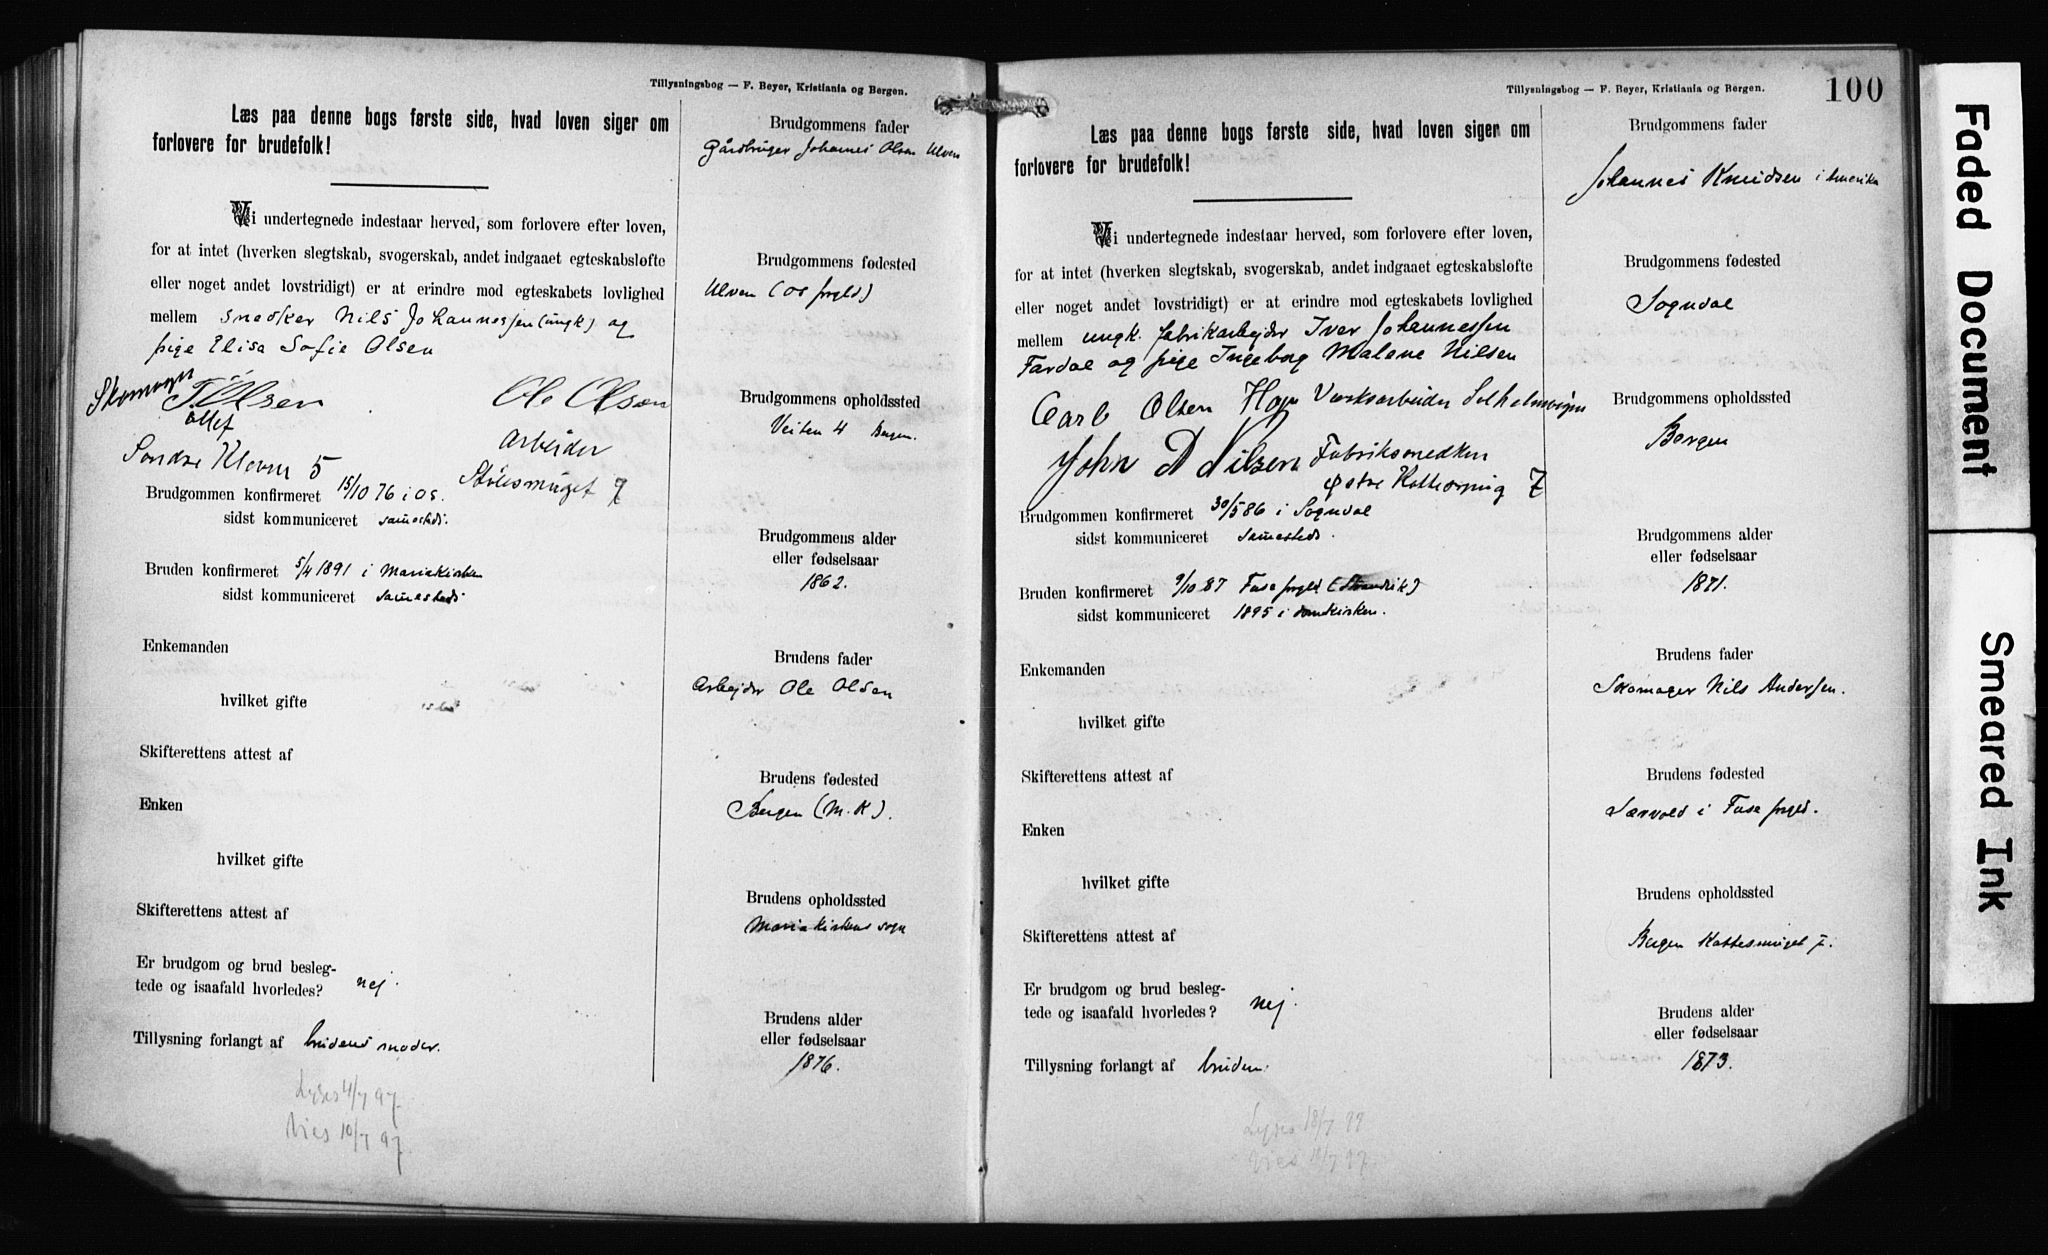 Tillysningsbog — F. Beyer, Kristiania og Bergen.
Læs paa denne bogs første side, hvad loven siger om
forlovere for brudefolk!
Vi undertegnede indestaar herved, som forlovere efter loven,
for at intet (hverken slegtskab, svogerskab, andet indgaaet egteskabsløfte
eller noget andet lovstridigt) er at erindre mod egteskabets lovlighed
mellem snedker Nils Johannessen (ungk) og
pige Elisa Sofie Olsen
Ole Olsen
Arbeider
Sondre Kloven 5
Brudgommen konfirmeret 15/10 76 i Os.
sidst kommuniceret samesteds.
Bruden konfirmeret 5/4 1891 i Mariakirken
sidst kommuniceret samesteds
Enkemanden
hvilket gifte
Skifterettens attest af
Enken
hvilket gifte
Skifterettens attest af
Er brudgom og brud besleg-
tede og isaafald hvorledes? nej.
Tillysning forlangt af brudens moder.
Lyses 4/7 97.
Vies 10/7 97
Brudgommens fader
Gårdbruger Johannes Olsen Ulven
Brudgommens fødested
Ulven (Os prgld)
Brudgommens opholdssted
Veiten 4 Bergen.
Brudgommens alder
eller fødselsaar
1862.
Brudens fader
Arbejder Ole Olsen
Brudens fødested
Bergen (M.K).
Brudens opholdssted
Mariakirkens sogn
Brudens alder
eller fødselsaar
1876.
Tillysningsbog — F. Beyer, Kristiania og Bergen.
100
Læs paa denne bogs første side, hvad loven siger om
forlovere for brudefolk!
Vi undertegnede indestaar herved, som forlovere efter loven,
for at intet (hverken slegtskab, svogerskab, andet indgaaet egteskabsløfte
eller noget andet lovstridigt) er at erindre mod egteskabets lovlighed
mellem ungk. fabrikarbejder Iver Johannessen
Fardal og pige Ingeborg Malene Nilsen
Carl Olsen Hop Værksarbeider
John A Nilsen Fabriksnedker
Østre 7
Brudgommen konfirmeret 30/5 86 i Sogndal
sidst kommuniceret samesteds.
Bruden konfirmeret 9/10 87 Fusa prgld (Strandvik)
sidst kommuniceret 1895 i domkirken.
Enkemanden
hvilket gifte
Skifterettens attest af
Enken
hvilket gifte
Skifterettens attest af
Er brudgom og brud besleg-
tede og isaafald hvorledes? nej.
Tillysning forlangt af bruden.
Lyses 18/7 97
Vies
Brudgommens fader
Johannes Knudsen i Amerika
Brudgommens fødested
Sogndal
Brudgommens opholdssted
Bergen
Brudgommens alder
eller fødselsaar
1871.
Brudens fader
Skomager Nils Andersen.
Brudens fødested
Sævold i Fusa prgld.
Brudens opholdssted
Bergen Kattesmuget 7.
Brudens alder
eller fødselsaar
1873.
Faded Document
Smeared Ink